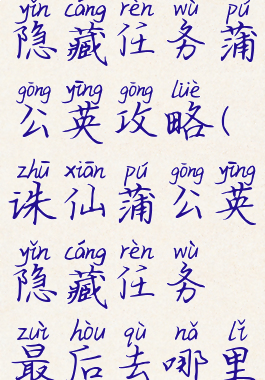 yǐn cáng rèn wù pú
隐藏任务蒲
gōng yīng gōng lüè
公英攻略(
zhū xiān pú gōng yīng
诛仙蒲公英
yǐn cáng rèn wù
隐藏任务
zuì hòu qù nǎ lǐ
最后去哪里